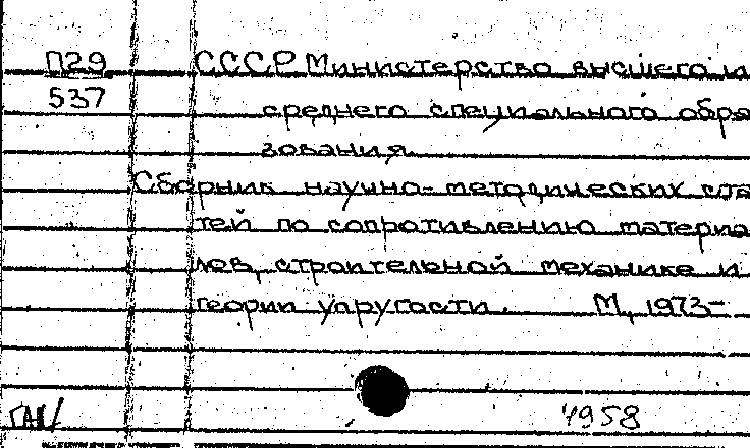 П29 СССР Министерство высшего и
537 среднего специального обра
зования.
Сборник научно-методических ста
тей по сопротивлению материа
лов, строительной механике и
теории упругости. М, 1973-
4958